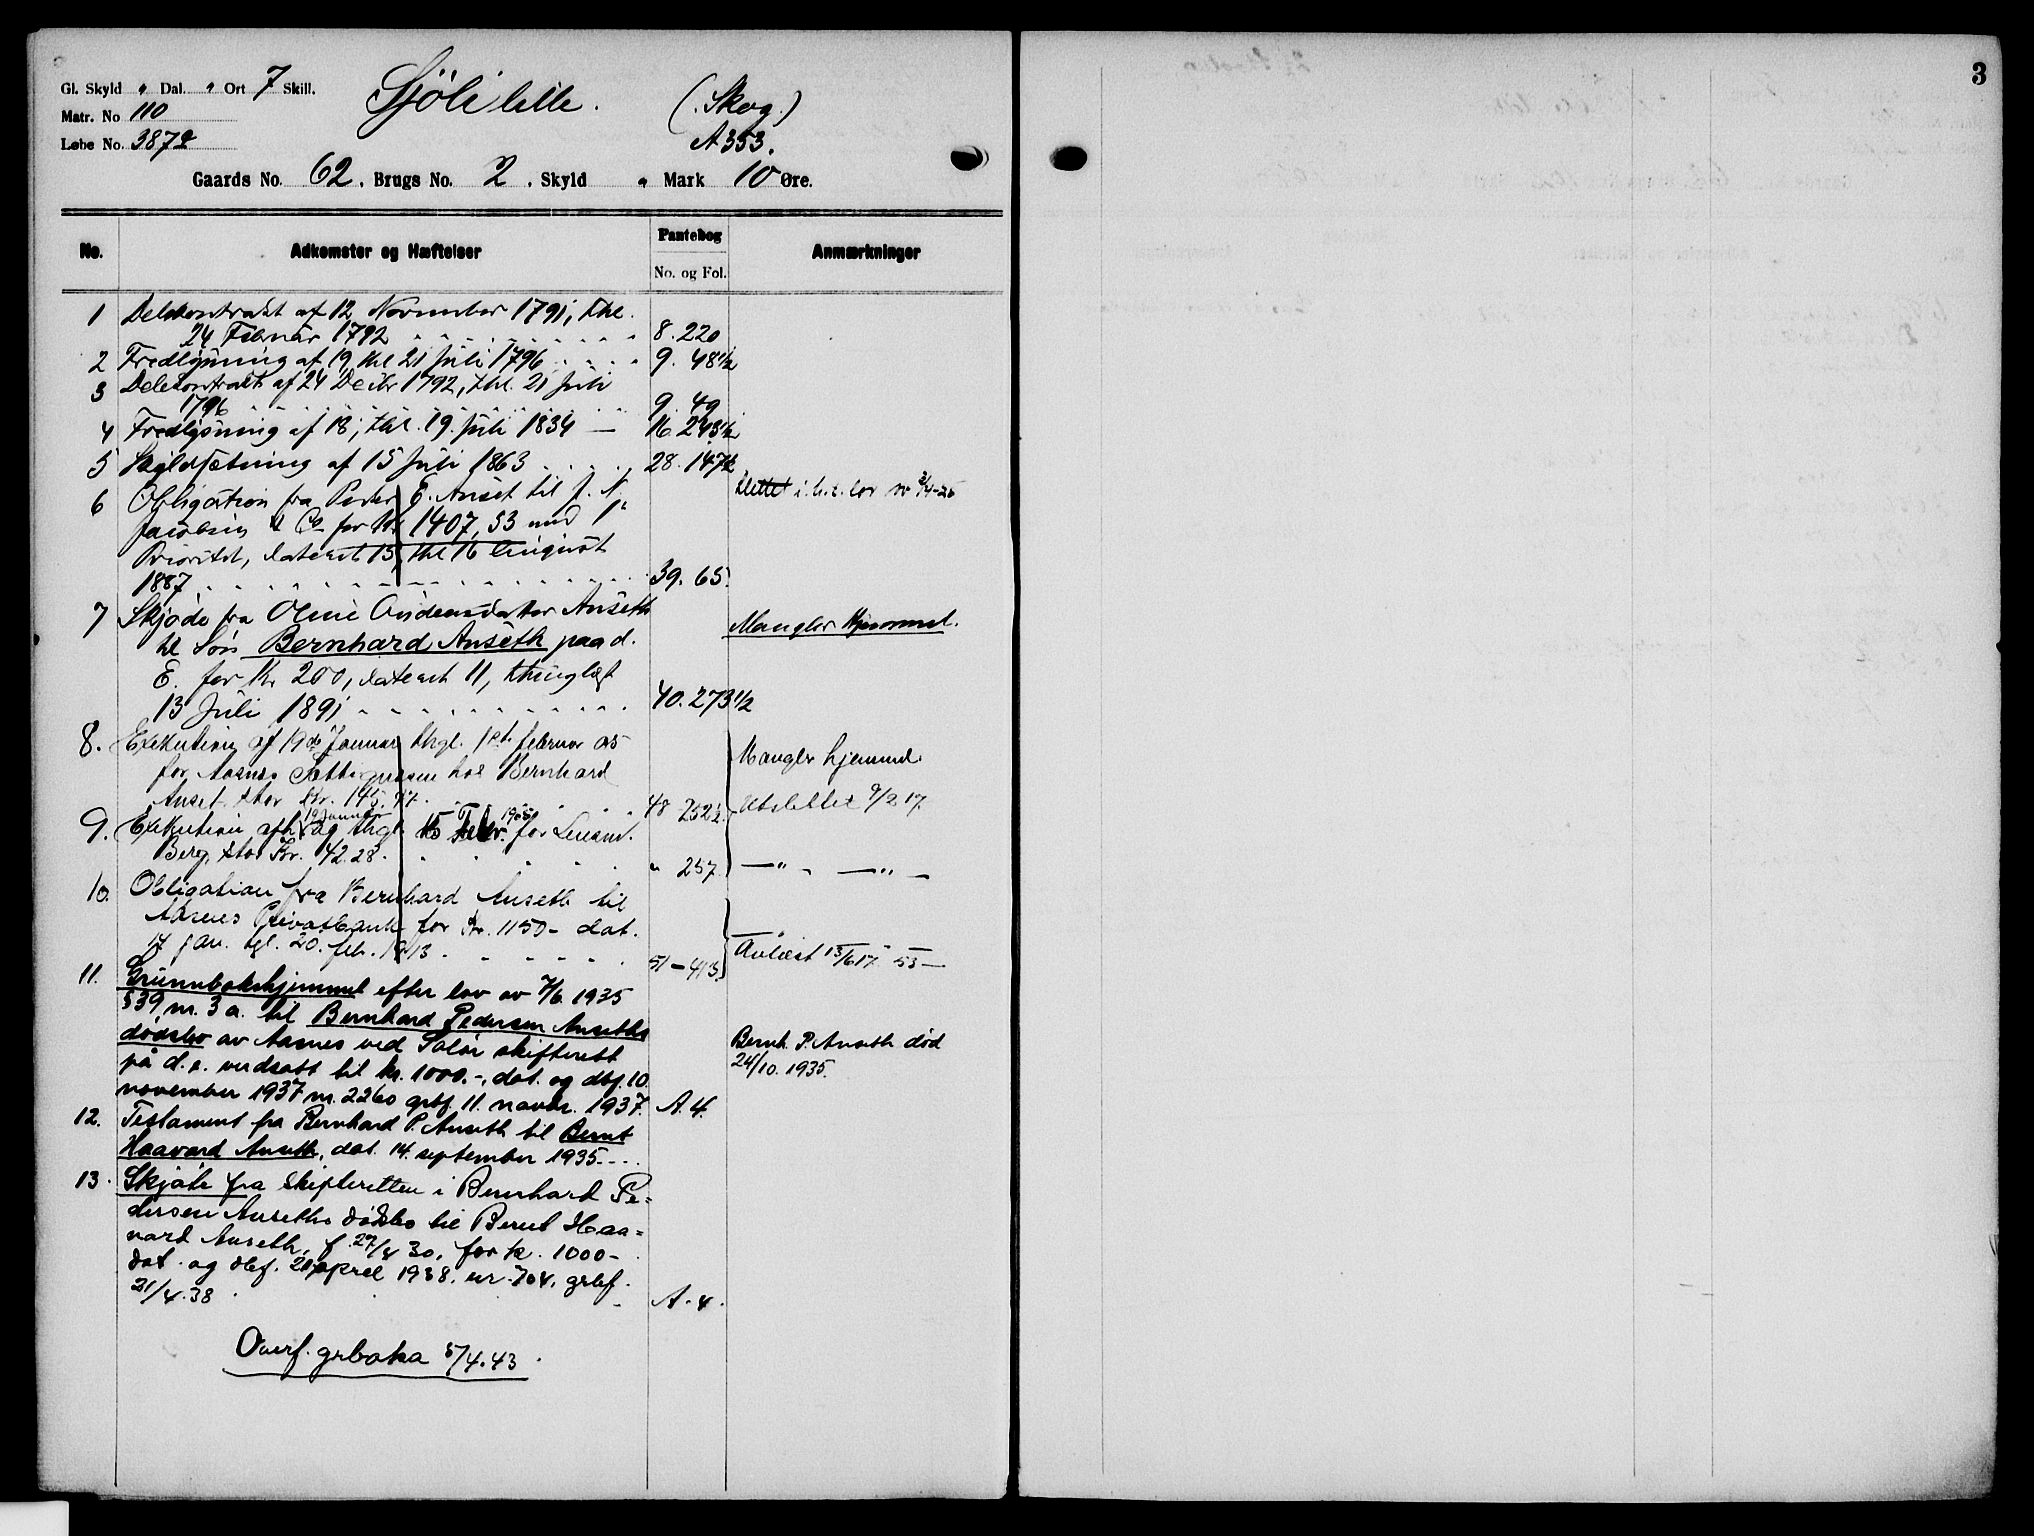 3
Gl. Skyld " Dal. " Ort 7 Skill.
Matr. No 110
Løbe No. 387
Sjöli lille. (Skog.)
A 353.
Gaards No. 62. Brugs No. 2. Skyld " Mark 10 Øre.
No. Adkomster og Hæftelser Pantebog No. og Fol. Anmærkninger
1 Delekontrakt af 12 November 1791, thl.
24 Februar 1792 8. 220
2 Fredlysning af 19, thl 21 Juli 1796 9. 48 1/2
3 Delekontrakt af 24 Decbr 1792, thl. 21 Juli
1796 9. 49
4 Fredlysning af 18, thl. 19. Juli 1834 — 16. 243 1/2
5 Skyldsætning af 15 Juli 1863 28. 147
6 Obligation fra Peder E. Anset til J. N.
Jacobsen & Co for Kr 1407,53 med 1ste
Prioritet, dateret 15, thl 16 August
1887 39. 65.
Slettet i h. t. lov av
7 Skjøde fra Oline Andersdatter Anseth
til Søn Bernhard Anseth paa d.
E. for Kr. 200, dateret 11, thinglæst
13 Juli 1891 40. 273 1/2
Mangler Hjemmel.
8. Exekution af 19de Januar thgl. 1ste februar 05
for Aasnes Fattigvæsen hos Bernhard
Anset stor Kr. 145.77. 48 252 1/2
Mangler hjemmel
Udslettet 9/2 17.
9. Exekution afh. 19 Januar og thgl. 15 Febr. 1905 for Lensm.
Berg, stor Kr. 42.28. " 257. —"— —"—
10. Obligation fra Bernhard Anseth til
Aasnes Privatbank for Kr. 1150- dat.
17 jan. tgl. 20. feb. 1913. 51 – 413.
Avlæst 13/6 17. 53 —
11. Grunnbokshjemmel efter lov av 7/6 1935
§ 39 nr. 3 a. til Bernhard Pedersen Anseths
dødsbo av Aasnes ved Solør skifterett
på d. e. verdsatt til kr. 1000.-, dat. og dbf. 10.
november 1937 nr. 2260 grbf. 11. novbr. 1937. A. 4.
Bernh. P. Anseth død
24/10. 1935.
12. Testament fra Bernhard P. Anseth til Bernt
Haavard Anseth, dat. 14. september 1935.
13. Skjøte fra skifteretten i Bernhard Pe=
dersen Anseths dødsbo til Bernt Haa=
vard Anseth, f. 27/8 30, for kr. 1000-
dat. og dbf. 20, april 1938. nr. 704. grbf.
21/4. 38 A. 4.
Overf. grboka 5/4. 43.